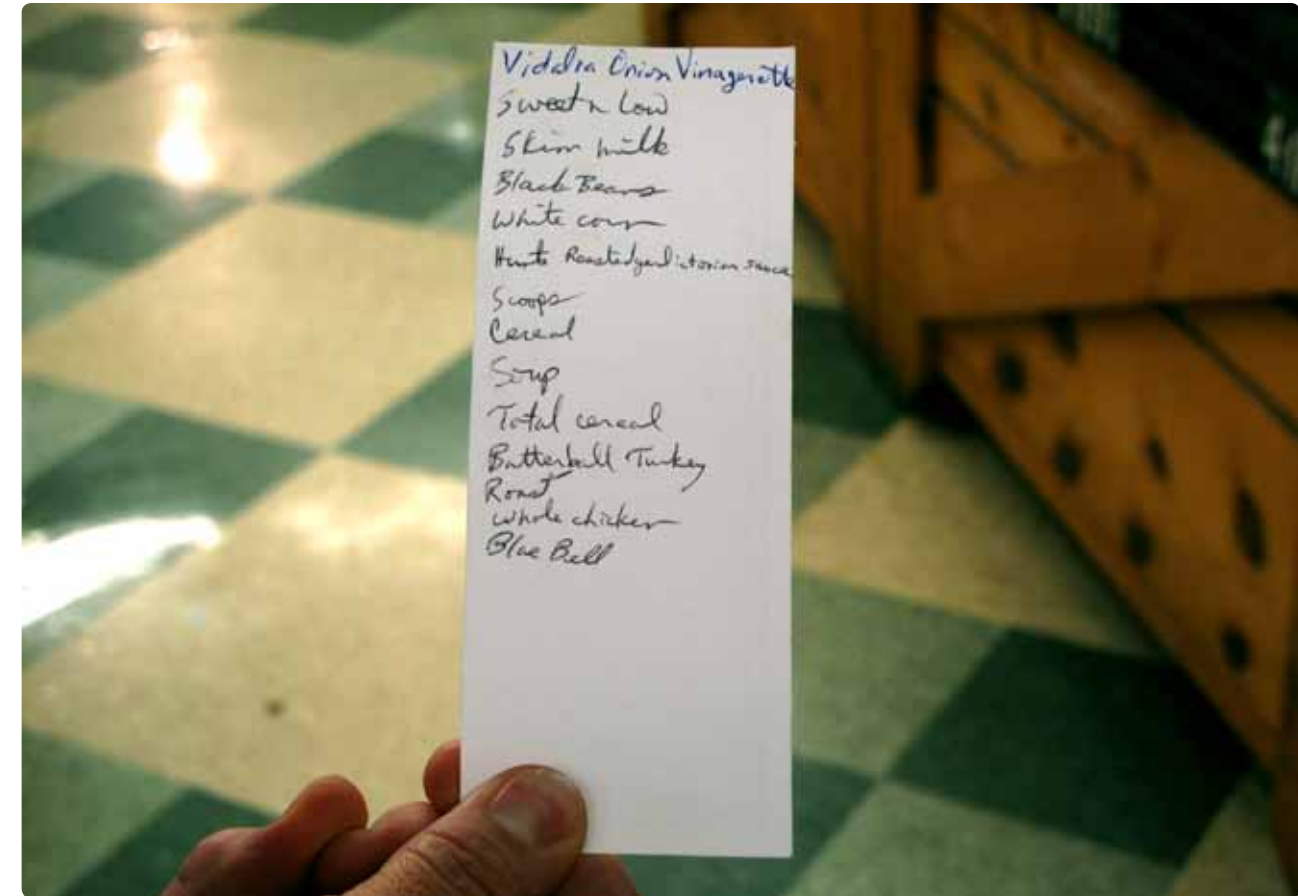 Vidalia Onion Vinagerette
Sweet n Low
Skim milk
Black Beans
White corn
Hunts Roasted garlic + onion sauce
Scoops
Cereal
Soup
Total cereal
Butterball Turkey
Roast
whole chicken
Blue Bell